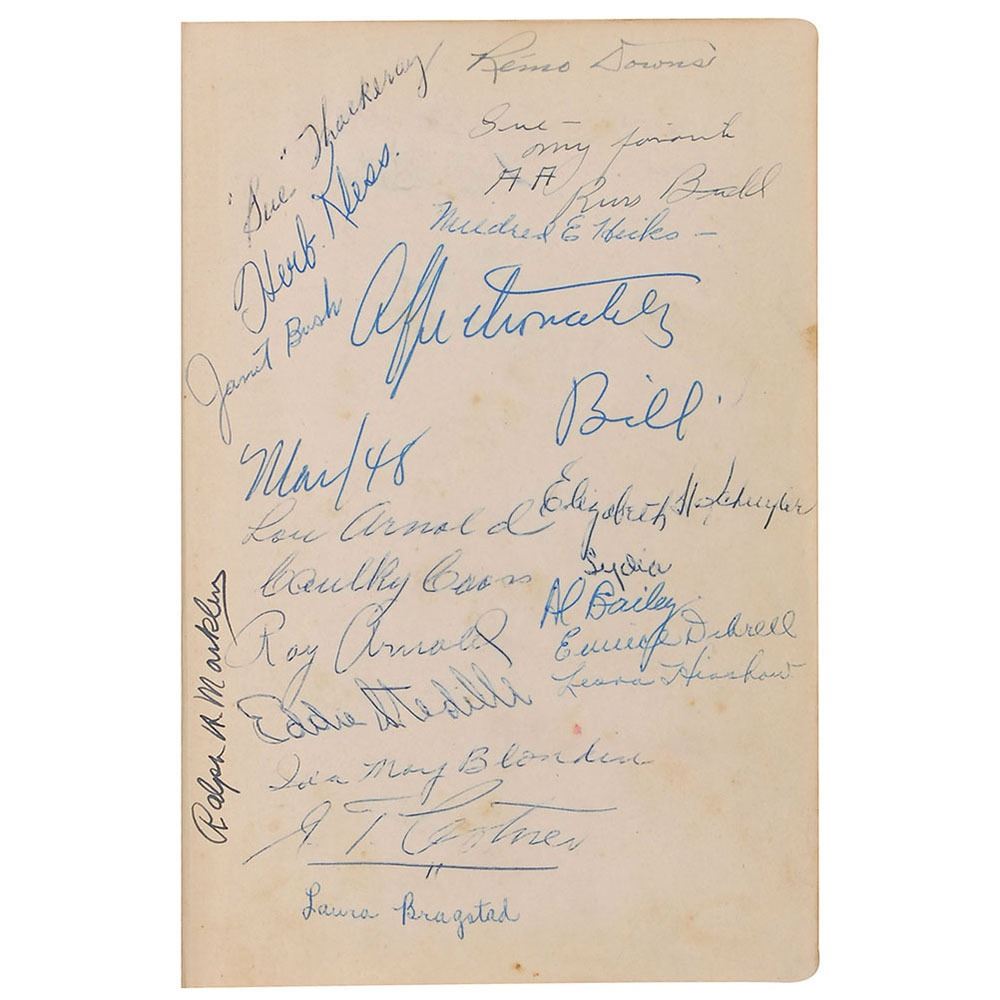 Remo Downs
"Sue" Thackeray
Sue—
my favorite
AA
Russ
Herb. Kless.
Mildred E Hicks —
Janet Bush
Affectionately
Bill
Mar/48
Elizabeth H Schuyler
Lou Arnold
Lydia
Caulky Coons
Al Bailey
Roy Arnold
Eunice Dibrell
Leora Hinshaw
Eddie
Ralph M Marklen
Ida May Blonden
T. Costner
Laura Bragstad